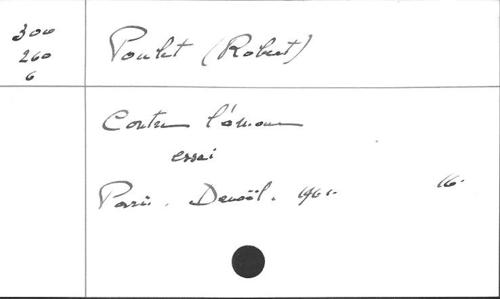 300
260
6
Poulet (Robert)
Contre l'amour
essai
Paris. Denoël. 1961. 16-